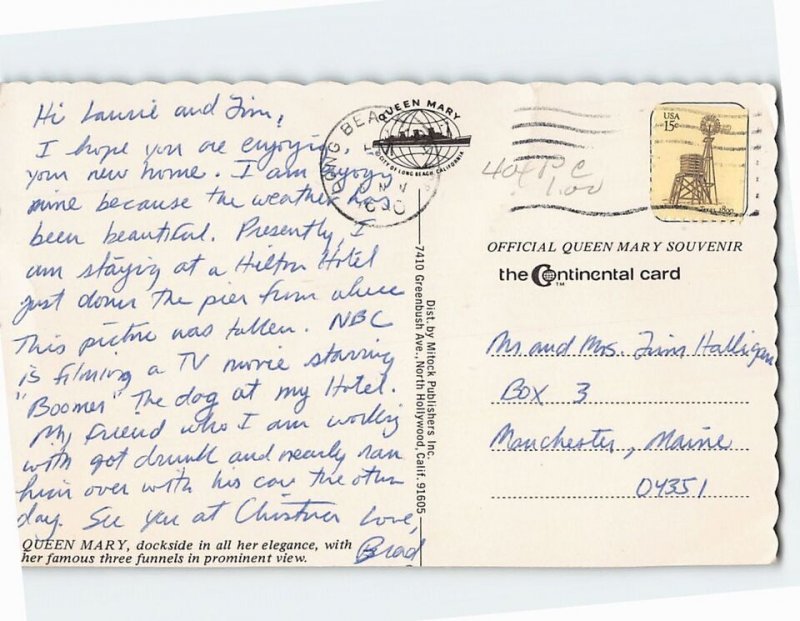 Hi Laurie and Jim,
I hope you are enjoying
your new home. I am enjoying
mine because the weather has
been beautiful. Presently, I
am staying at a Hilton Hotel
just down the pier from where
This picture was taken. NBC
is filming a TV movie starring
"Boomer" The dog at my Hotel.
My friend who I am working
with got drunk and nearly ran
him over with his car the other
day. See you at Christmas Love,
Brad
QUEEN MARY, dockside in all her elegance, with
her famous three funnels in prominent view.
LONG BEA
NOV
QUEEN MARY
CITY OF LONG BEACH, CALIFORNIA
Dist. by Mitock Publishers Inc.
7410 Greenbush Ave., North Hollywood, Calif. 91605
USA
15c
1.00
OFFICIAL QUEEN MARY SOUVENIR
the Continental card
TM
Mr. and Mrs. Jim Halligan
Box 3
Manchester, Maine
04351